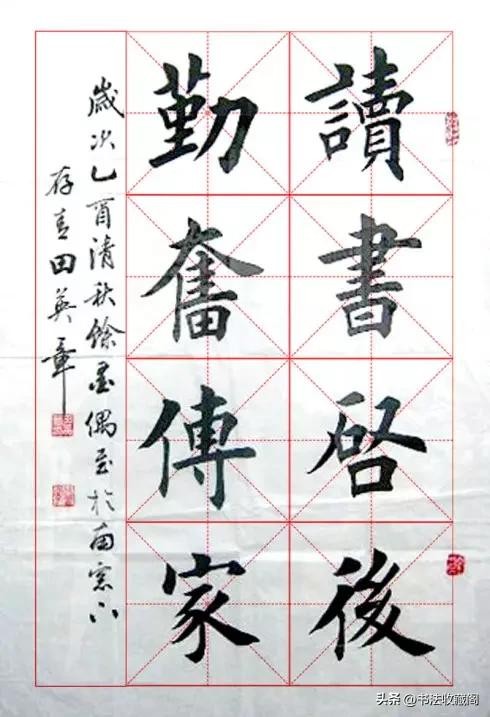 讀書啓後
勤奮傳家
歲次乙酉清秋餘墨偶至於南窓下
存青田英章
头条 @书法收藏阁